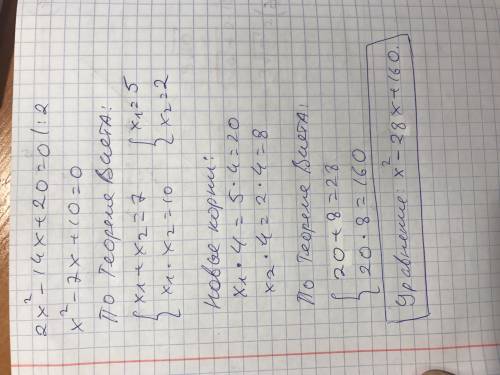 2x² - 14x + 20 = 0 |:2
x² - 7x + 10 = 0
По теореме Виета:
{ x₁ + x₂ = 7 { x₁ = 5
{ x₁ · x₂ = 10 { x₂ = 2
Новые корни:
x₁ · 4 = 5 · 4 = 20
x₂ · 4 = 2 · 4 = 8
По теореме Виета:
{ 20 + 8 = 28
{ 20 · 8 = 160
Уравнение: x² - 28x + 160.